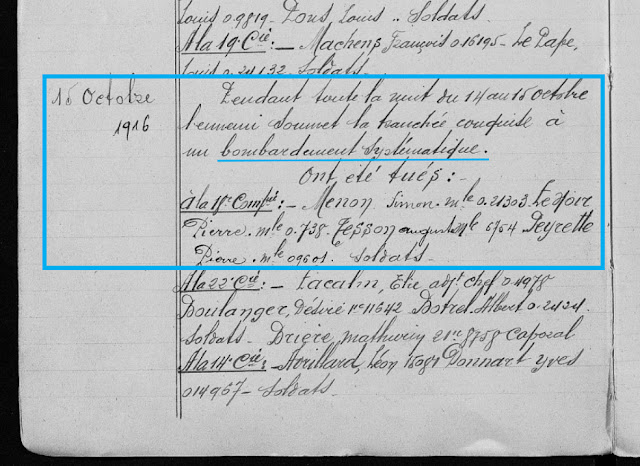 Louis 0.9819 - Pons, Louis .. Soldats.
A la 19e Cie : - Machens François 0.16195 - Le Pape,
Louis 0.24132. Soldats.
15 Octobre
1916
Pendant toute la nuit du 14 au 15 Octobre
l'ennemi soumet la tranchée conquise à
un bombardement systématique.
Ont été tués : -
à la 18e Compie : - Menon, Simon. mle 0.21303.
Pierre. mle 0.738. Tesson augustin mle 6754 Peyrette
Pierre. mle 09601. Soldats. -
A la 22e Cie : - Lacalm, Elie adjt chef 0.4978
Boulanger, Désiré 11642 Botrel Albert 0.2424.
Soldats - Drière, mathurin 8758 Caporal
A la 14e Cie : - Avrillard, Léon 15081 Donnart Yves
014967 - Soldats.